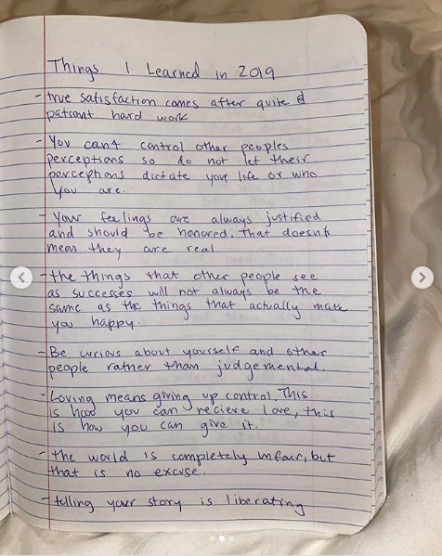 Things I Learned in 2019
- true satisfaction comes after quite &
patient hard work
- You can't control other peoples
perceptions so do not let their
perceptions dictate your life or who
you are.
- Your feelings are always justified
and should be honored. that doesn't
mean they are real
- the things that other people see
as successes will not always be the
same as the things that actually make
you happy.
- Be curious about yourself and other
people rather than judgemental.
- Loving means giving up control. This
is how you can recieve love, this
is how you can give it.
- the world is completely unfair, but
that is no excuse.
- telling your story is liberating